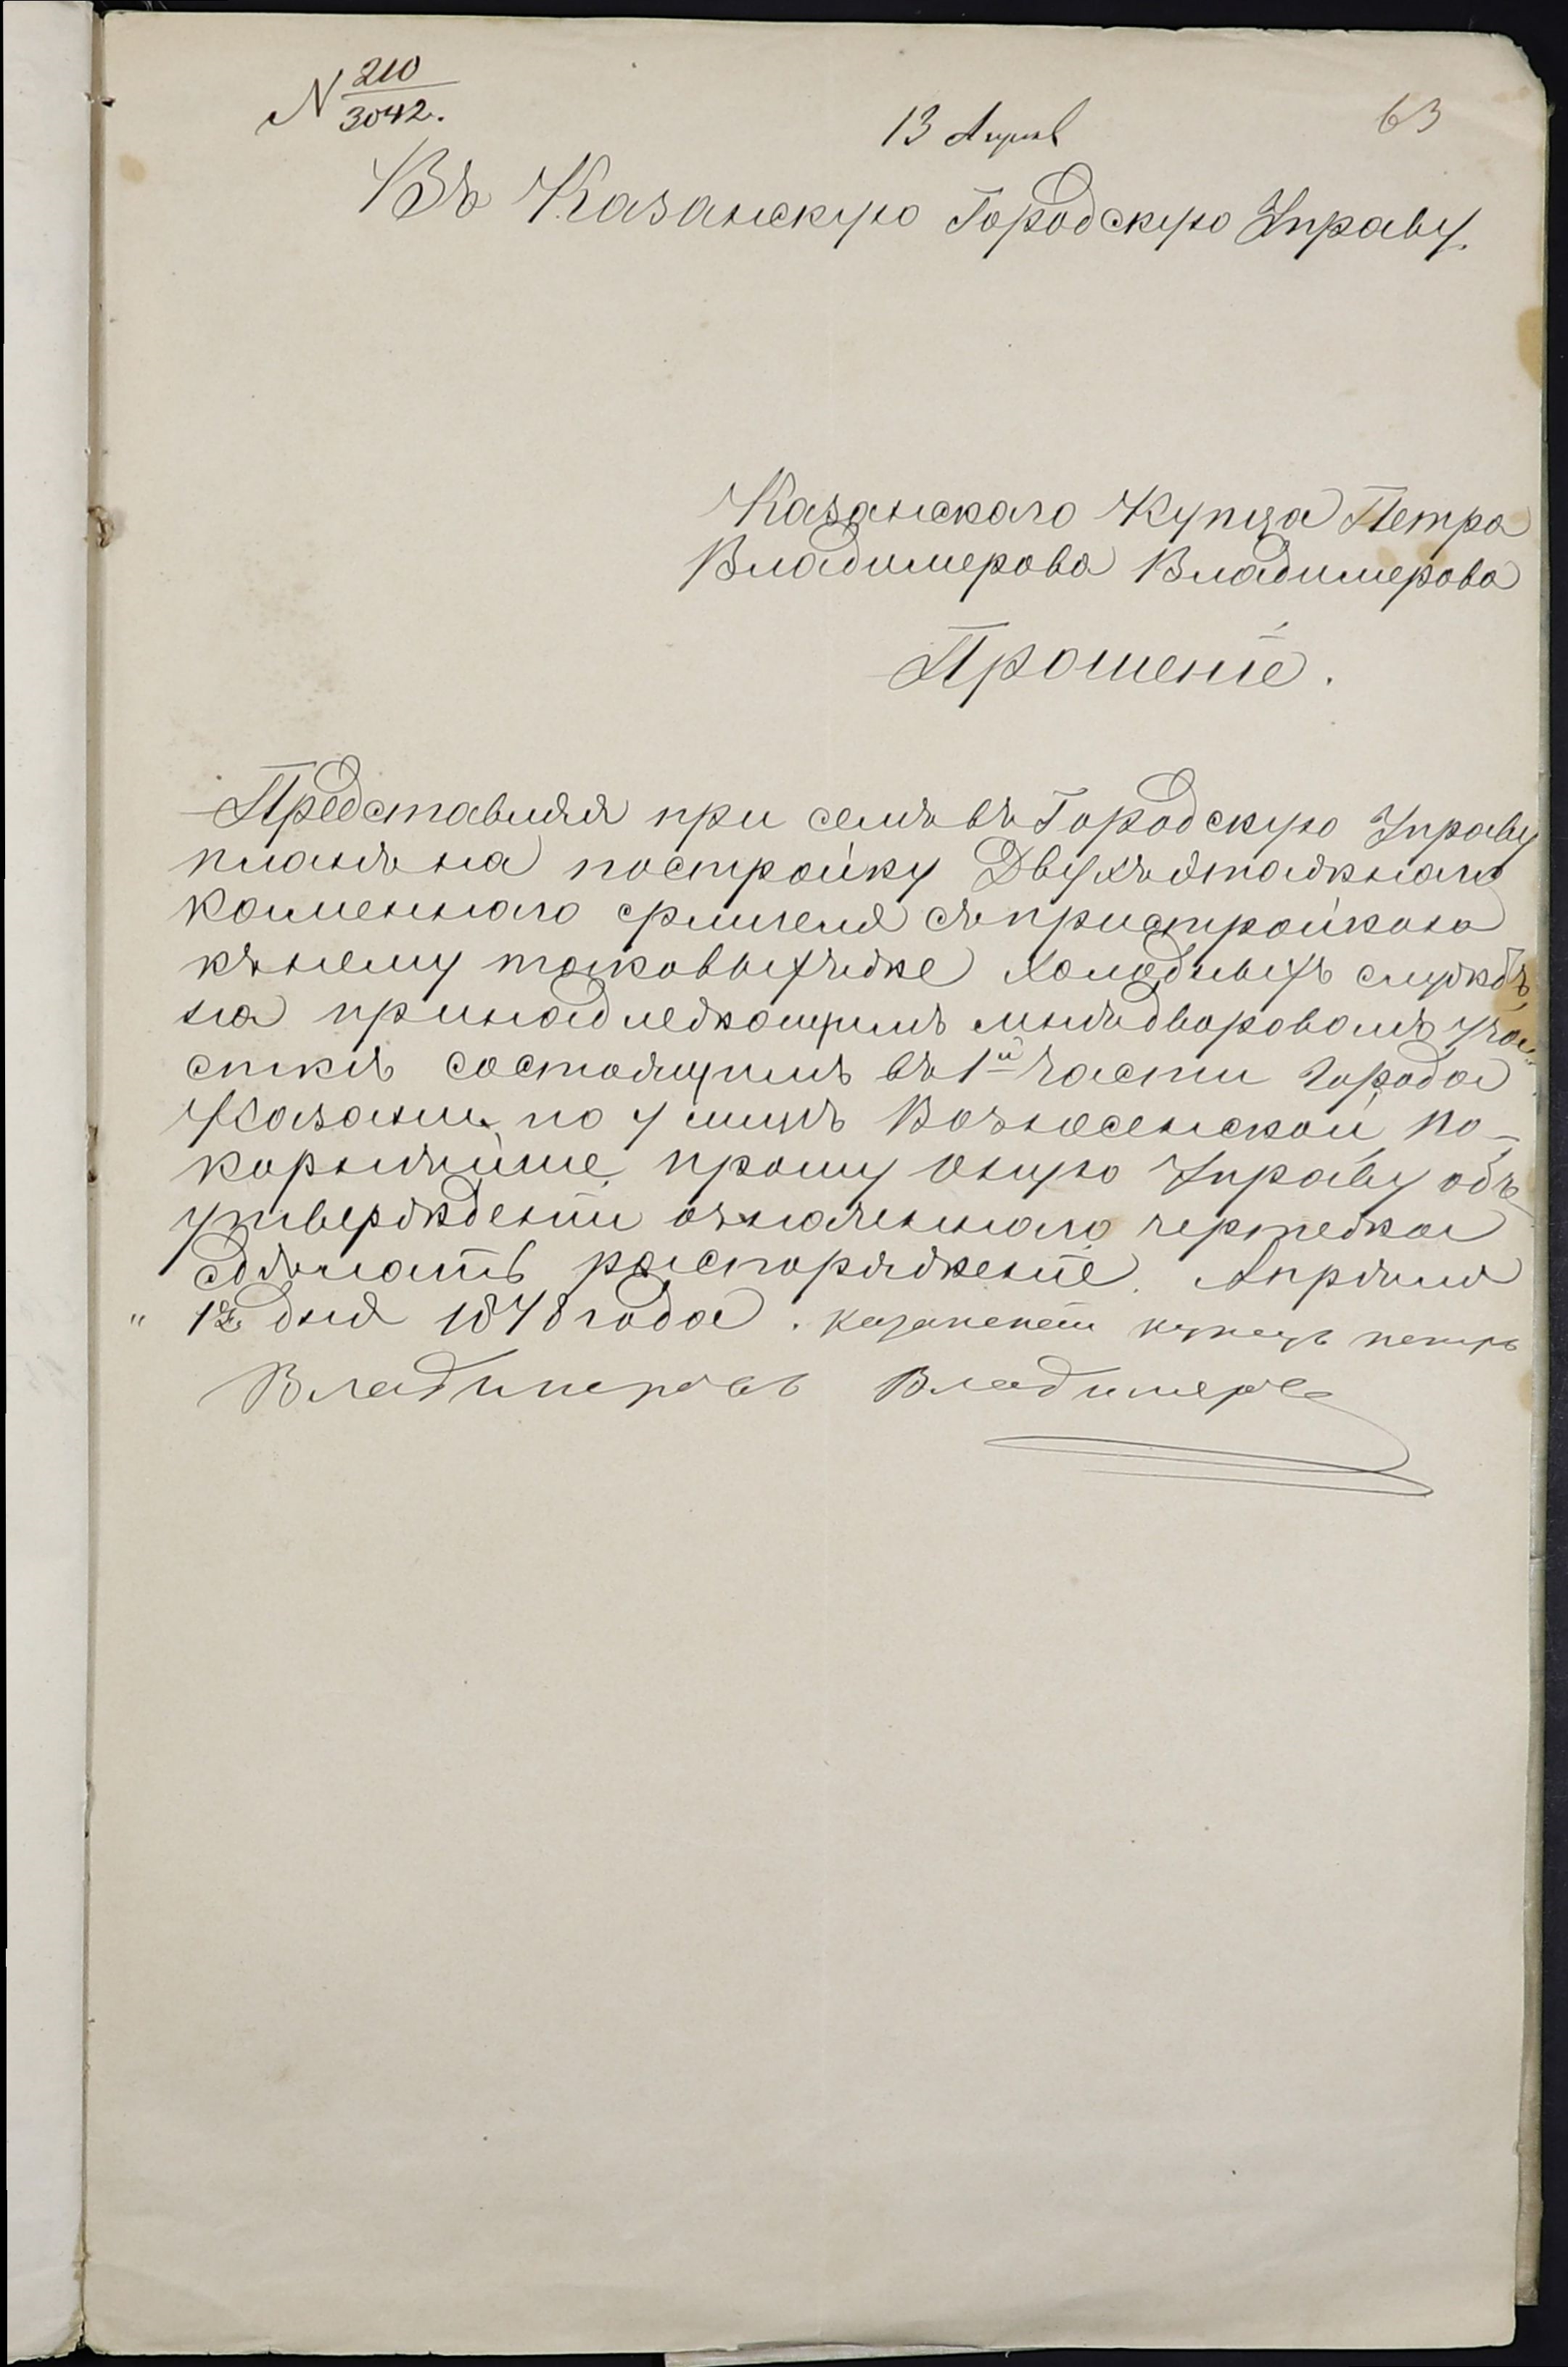 N 210/3042.
13 Апрѣл
63
Въ Казанскую Городскую Управу.
Казанскаго Купца Петра
Владимерова Владимерова
Прошеніе.
Представляя при семъ въ Городскую Управу
планъ на постройку Двухъ этажнаго
каменнаго флигеля съ пристройкою
къ нему таковыхъ же холодныхъ службъ,
на принадлежащимъ мнѣ дворовомъ уча-
сткѣ состоящимъ въ 1й части города
Казани, по улицѣ Вознесенской, по-
корнѣйше прошу оную Управу объ
утвержденіи означеннаго чертежа
сдѣлать распоряженіе. Апрѣля
" 12 дня 1878 года. казанскеи купецъ петръ
Владимеровъ Владимеровъ